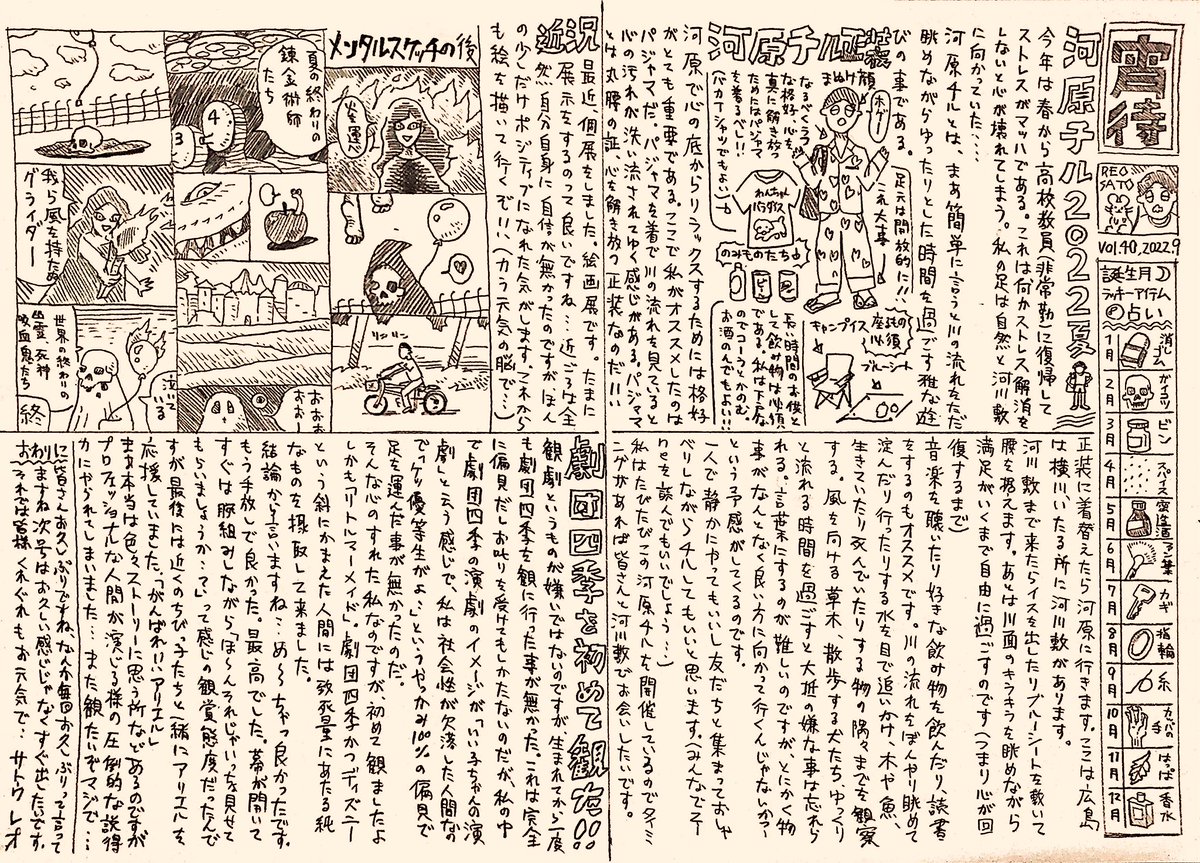 宵待
REO SATO
Vol.40, 2022.9
誕生月
ラッキーアイテム
占い
1月 消しゴム
2月 ガイコツ
3月 ビン
4月 スパイス
5月 蜜造
6月
7月 カギ
8月 指輪
9月 糸
10月 カッパの手
11月 はっぱ
12月 香水
河原チル2022夏
今年は春から高校教員(非常勤)に復帰して
ストレスがマッハである。これは何かストレス解消を
しないと心が壊れてしまう。私の足は自然と河川敷
に向かっていた…
河原チルとは、まあ簡単に言うと川の流れをただ
眺めながらゆったりとした時間を過ごす雅な遊
びの事である。
河原チル正装
まぬけ顔
ホゲー
なるべくラフ
な格好。心を
真に解き放つ
ためにはパジャマ
を着るべし!!
(バカTシャツでもよい)
これ大事
足元は開放的に!!
わんちゃんパラダイス
のみものたち
長い時間のお供と
して飲み物は必須
である。私は下戸な
のでコーラとかのむ
お酒のんでもよい!!
キャンプイス
座るもの必須
ブルーシート
河原で心の底からリラックスするためには格好
がとても重要である。ここで私がオススメしたのは
パジャマだ。パジャマを着て川の流れを見ていると
心の汚れが洗い流されてゆく感じがある。パジャマ
とは丸腰の証、心を解き放つ正装なのだ!!!
正装に着替えたら河原に行きます。ここは広島
は横川、いたる所に河川敷があります。
河川敷まで来たらイスを出したりブルーシートを敷いて
腰を据えます。あとは川面のキラキラを眺めながら
満足がいくまで自由に過ごすのです(つまり心が回
復するまで)
音楽を聴いたり好きな飲み物を飲んだり、読書
をするのもオススメです。川の流れをぼんやり眺めて
淀んだり行ったりする水を目で追いかけ、木や魚、
生きていたり死んでいたりする物の隅々までを観察
する。風を向ける草木、散歩する犬たち、ゆっくり
と流れる時間を過ごすと大抵の嫌な事は忘れら
れる。言葉にするのが難しいのですが、とにかく物
事がなんとなく良い方に向かって行くんじゃないか?
という予感がしてくるのです。
一人で静かにやってもいいし友だちと集まっておしゃ
べりしながらチルしてもいいと思います。(みんなでエー
neを読んでもいいでしょう…)
私はたびたびこの河原チルを開催しているのでタイミ
ングがあれば皆さんと河川敷でお会いしたいです。
近況
最近、個展をしました。絵画展です。たまに
展示をするのって良いですね…近ごろは全
然自分自身に自信が無かったのですがほん
の少しだけポジティブになれた気がします。これから
も絵を描いて行くぞ!!(カラ元気の脳で…)
メンタルスケッチの後
火を運べ
リンリン
夏の終わりの
錬金術師
たち
3 4
おおお
おお…
我ら風を持たぬ
グライダー
世界の終わりの
幽霊、死神
吸血鬼たち
泣いている
終
劇団四季を初めて観た!!
観劇というものが嫌いではないのですが生まれてから一度
も劇団四季を観に行った事が無かった。これは完全
に偏見だしお叱りを受けてもしかたないのだが、私の中
で劇団四季の演劇のイメージが「いい子ちゃんの演
劇」と云う感じで、私は社会性が欠落した人間なの
で「ケッ優等生がよ…」というやっかみ100%の偏見で
足を運んだ事が無かったのだ。
そんな心のすれた私なのですが、初めて観ましたよ
しかも「リトルマーメイド」。劇団四季かつディズニー
という斜にかまえた人間には致死量にあたる純
なものを摂取して来ました。
結論から言いますね…め〜〜ちゃっ良かったです。
もう手放しで良かった。最高でした。幕が開いて
すぐは腕組みしながら「ほ〜んそれじゃいっちょ見せて
もらいましょうか…て」って感じの観賞態度だったんで
すが最後には近くのちびっ子たちと一緒にアリエルを
応援していました。「がんばれ!!アリエル」
まぁ本当は色々ストーリーに思う所など、あるのですが
プロフェッショナルな人間が演じる様の圧倒的な説得
力にやられてしまいました…また観たいでマジで…
に皆さんお久しぶりですね、なんか毎回お久しぶりって言って
ますね次号はお久しい感じじゃなくすぐ出したいです。
おそれでは皆様くれぐれもお元気で… サトウレオ